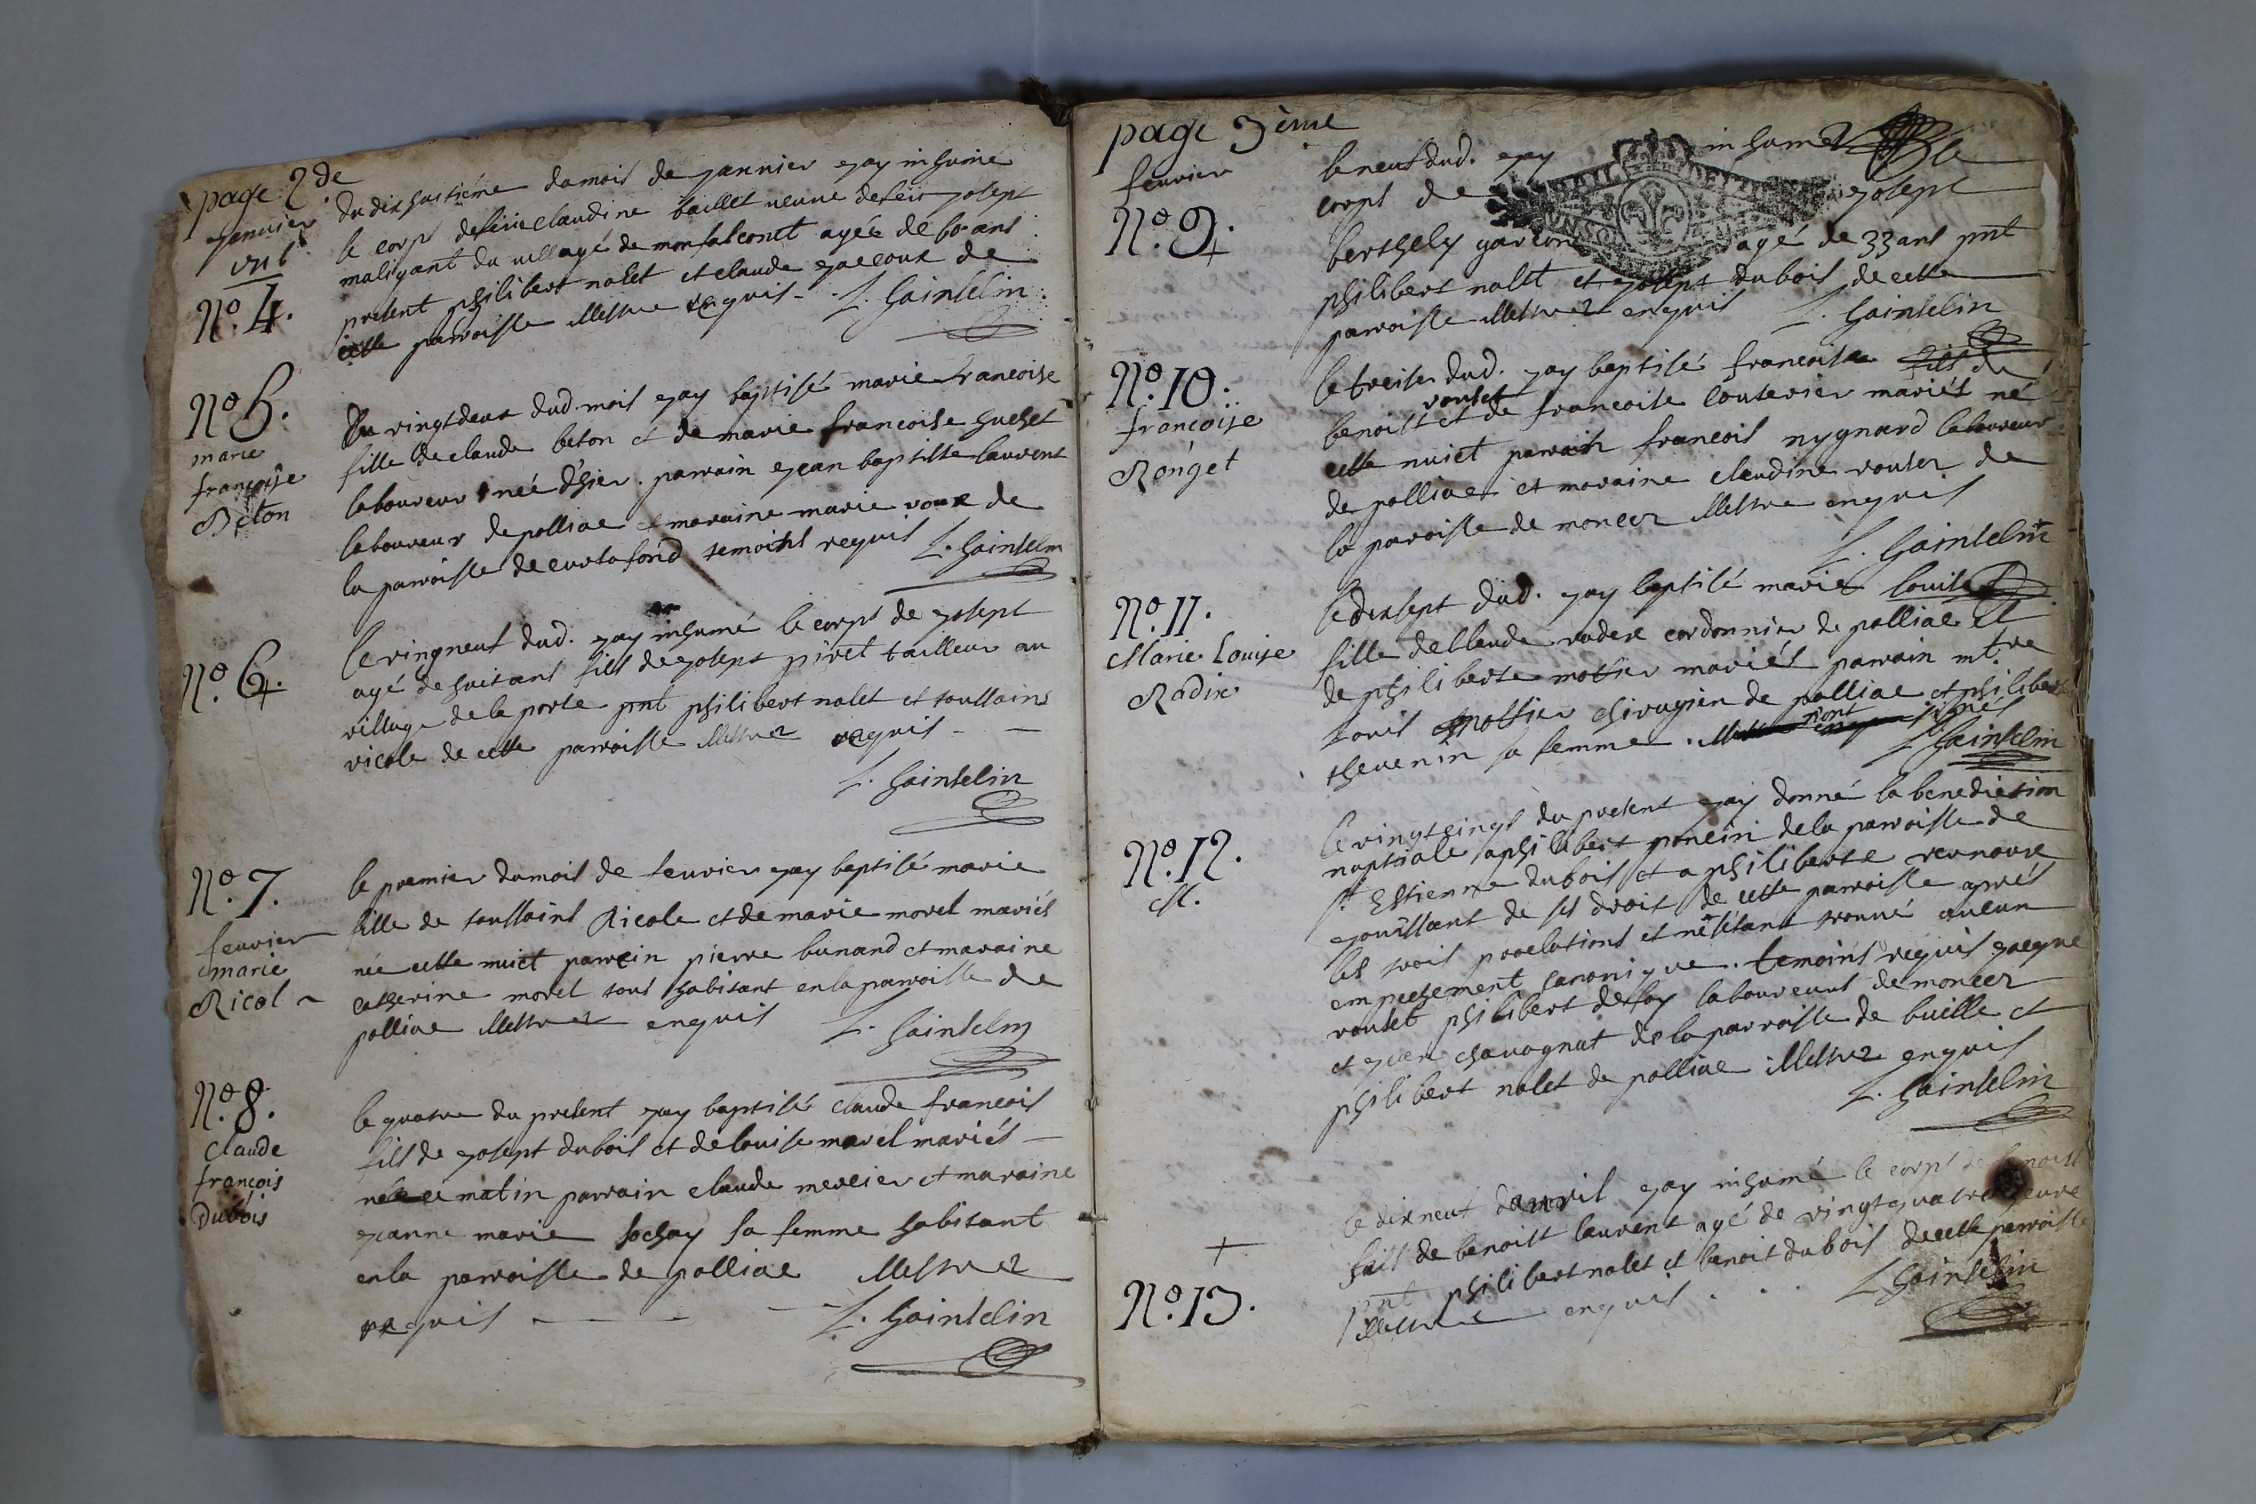 page 2.de
janvier
N.o 4.
du dixhuitiéme du mois de janvier jay inhumé
le corps de feüe claudine baillet veuve de feu josept
maligant du village de monfalconet agée de 60 ans
present philibert nalet et claude jaccoux de
cette parroisse illettrez requis - . L. Gaintelin
N.o 5.
marie
françoise
Béton
Du vingtdeux dud. mois jay baptisé marie francoise
fille de claude beton et de marie francoise guchet
laboureur née d'hier. parrain jean baptiste laurent
laboureur de polliac et maraine marie roux de
la parroisse de curtafond temoins requis L. Gaintelin
N.o 6.
Le vingneuf dud. jay inhumé le corps de josept
agé de huit ans fils de josept pivet tailleur au
village de la porte pnt philibert nalet et toussains
ricole de cette parroisse illettrez requis - -
L. Gaintelin
N.o 7.
fevrier
marie
Ricol
le premier du mois de feuvrier jay baptisé marie
fille de toussains Ricole et de marie morel mariés
née cette nuict parrein pierre bunand et maraine
catherine morel tous habitant en la parroisse de
polliac illettrez enquis L. Gaintelin
N.o 8.
Claude
françois
Dubois
le quatre du present jay baptisé claude francois
fils de josept dubois et de louise marel mariés -
né ce matin parrain claude mercier et maraine
jeanne marie sochay sa femme habitant
en la parroisse de polliac illettrez
requis - - - - L. Gaintelin
page 3 ème
fevrier
N.o 9.
le neuf dud. jay inhumé le
corps de josept
berthely garcon agé de 33 ans pnt
philibert nalet et josept dubois de cette
parroisse illettrez enquis L. Gaintelin
N.o 10.
françoise
Ronget
le treise dud. jay baptisé francoise fils de
roulet
benoist et de francoise couturier mariés né
cette nuict parrain francois nygnard laboureur
de polliac et maraine claudine roulet de
la paroisse de moncez illettre enquis
L. Gaintelin
N.o 11.
Marie Louise
Radix
le dixsept dud. jay baptisé marie louise
fille de Claude radix cordonnier de polliac et
de philiberte mottier mariés parrain mtre
Louis mottier chirugien de polliac et philiberte
thevenin sa femme. illettrez enquis
L. Gaintelin
N.o 12.
M.
le vingtcinqt du present jay donné la benediction
nuptiale a philibert poncin de la parroisse de
st Estienne dubois et a philiberte
jouissant de ses droit de cette parroisse aprés
les trois proclations et nestant trouvé aucun
empechement canonique. temoins requis
roulet philibert defay laboureurs de moncez
et jean chavagnat de la parroisse de buelle et
philibert nalet de polliac illettrez enquis
L. Gaintelin
+
N.o 13.
le dixneuf d'avril jay inhumé le corps de benoist
fils de benoist laurent agé de vingtquatre heure
pnt philibert nalet et benoit dubois de cette parroisse
illettré enquis . . . L. Gaintelin